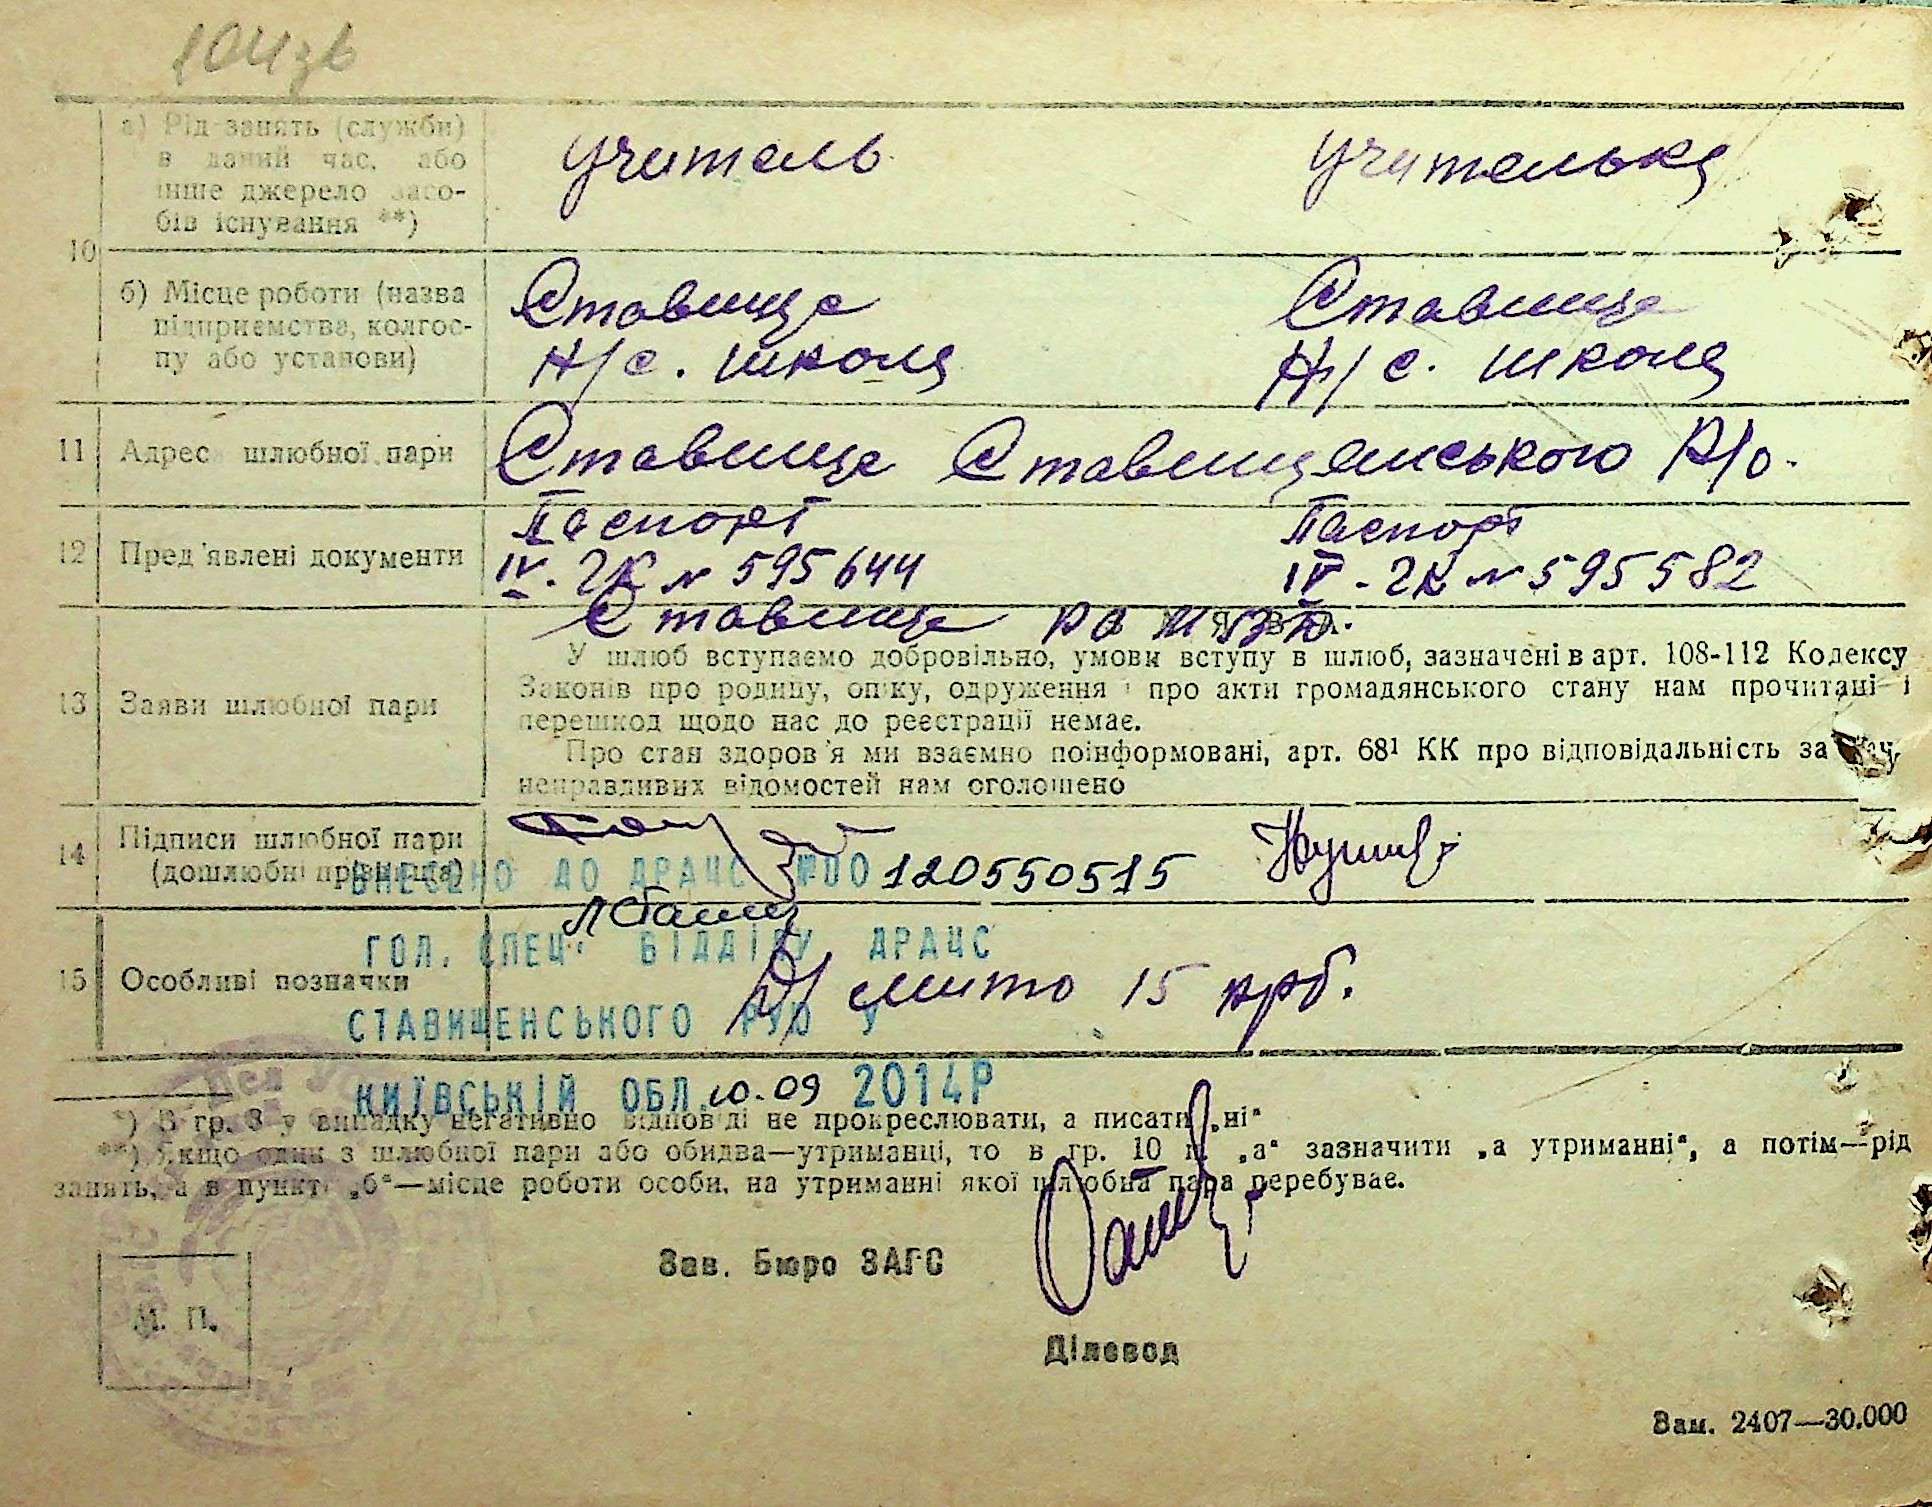 104зв
а) Рід занять (служби) в даний час, або інше джерело засобів існування **)
учитель
учителька
10
б) Місце роботи (назва підприємства, колгоспу або установи)
Ставище
Н/с. школа
Ставище
Н/с. школа
11 Адрес шлюбної пари
Ставище Ставищанського Р/о.
12 Пред'явлені документи
Паспорт
IV. ЧК № 595644
Паспорт
IV - ЧК № 595582
Ставище РО
13 Заяви шлюбної пари
У шлюб вступаємо добровільно, умови вступу в шлюб, зазначені в арт. 108-112 Кодексу
Законів про родину, опіку, одруження і про акти громадянського стану нам прочитані і
перешкод щодо нас до реєстрації немає.
Про стан здоров'я ми взаємно поінформовані, арт. 68¹ КК про відповідальність за
неправдивих відомостей нам оголошено
14 Підписи шлюбної пари
(дошлюбні прізвища)
ВНЕСЕНО ДО ДРАЦС №00120550515
ГОЛ. СПЕЦ. ВІДДІЛУ ДРАЦС
15 Особливі позначки
мито 15 крб.
СТАВИЩЕНСЬКОГО РУЮ У
КИЇВСЬКІЙ ОБЛ. 10.09 2014Р
*) В гр. 8 у випадку негативно відповіді не прокреслювати, а писати „ні“
**) Якщо один з шлюбної пари або обидва—утриманці, то в гр. 10 п. „а“ зазначити „а утриманні“, а потім—рід
занять, а в пункті „б“—місце роботи особи, на утриманні якої шлюбна пара перебуває.
Зав. Бюро ЗАГС
М. П.
Діловод
Зам. 2407—30.000